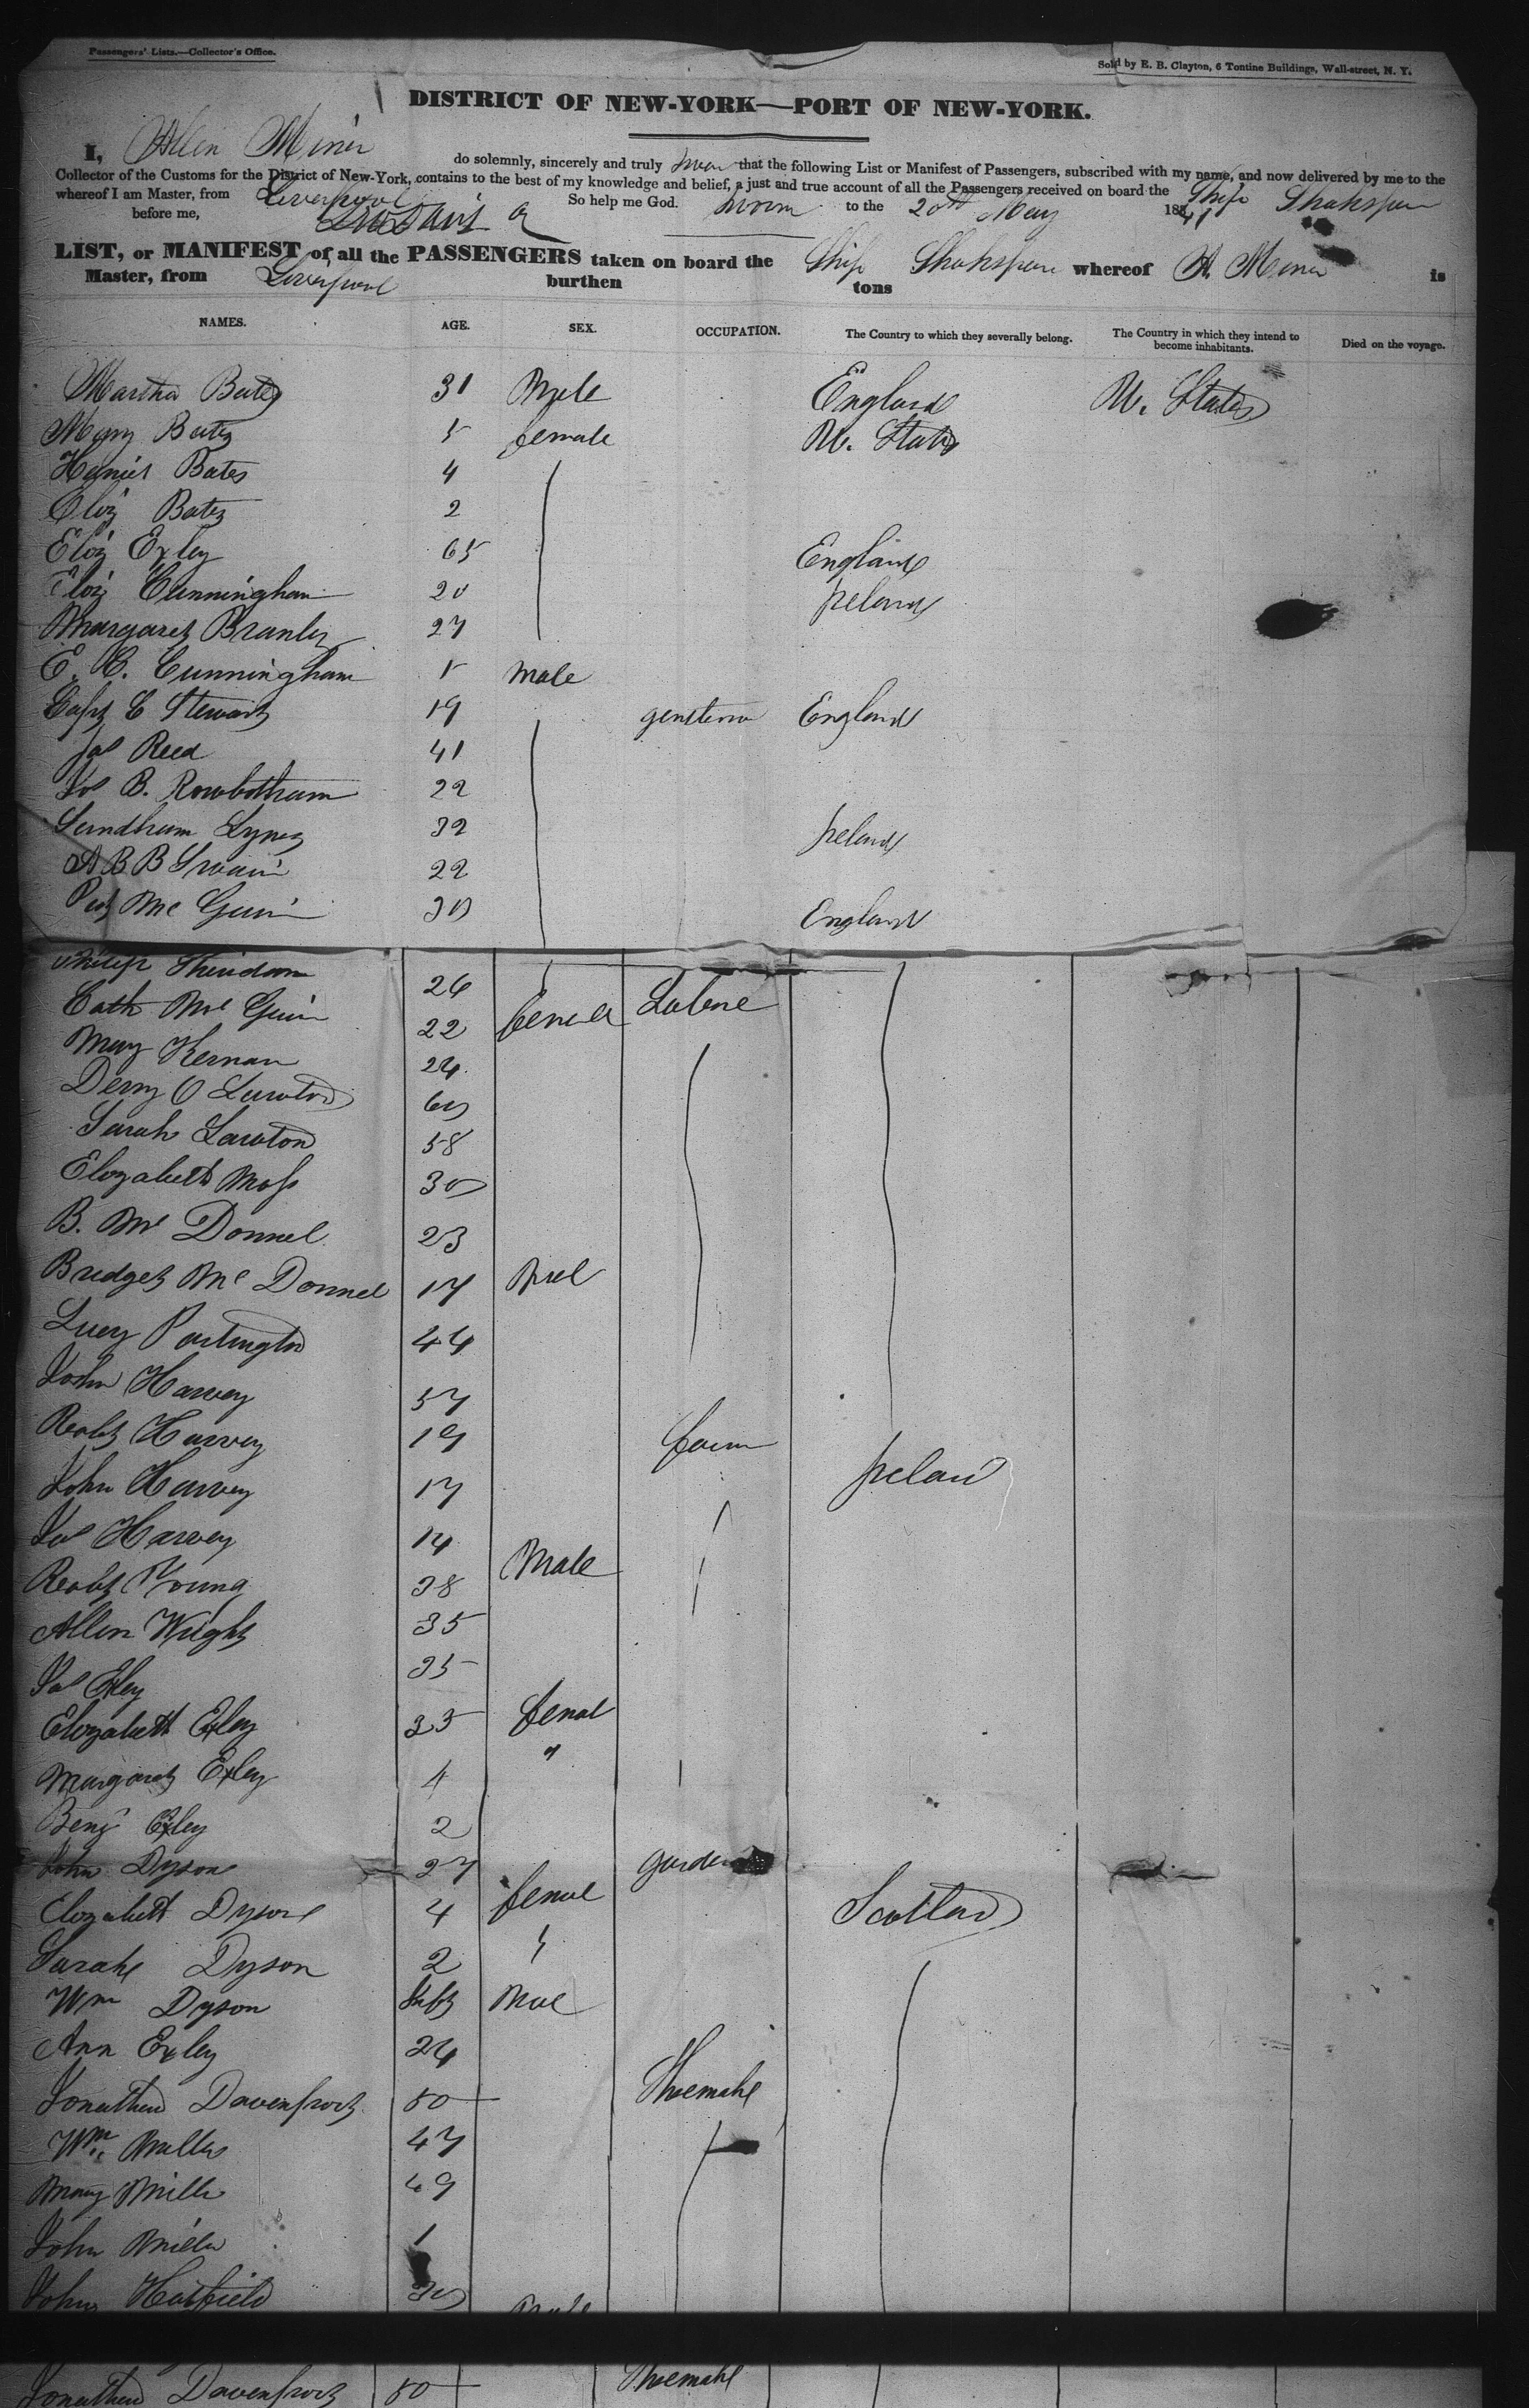 Passengers' Lists.—Collector's Office.
Sold by E. B. Clayton, 6 Tontine Buildings, Wall-street, N. Y.
DISTRICT OF NEW-YORK—PORT OF NEW-YORK.
I, Allen Miner do solemnly, sincerely and truly swear that the following List or Manifest of Passengers, subscribed with my name, and now delivered by me to the
Collector of the Customs for the District of New-York, contains to the best of my knowledge and belief, a just and true account of all the Passengers received on board the Ship Shakspear
whereof I am Master, from Liverpool So help me God. sworn to the 20th May 1841
before me,
LIST, or MANIFEST of all the PASSENGERS taken on board the Ship Shakspear whereof A. Miner is
Master, from Liverpool burthen tons
NAMES. AGE. SEX. OCCUPATION. The Country to which they severally belong. The Country in which they intend to become inhabitants. Died on the voyage.
Martha Bates 31 Male England U. States
Mary Bates 5 female U. States
Bates 4
Eliz Bates 2
Eliz Exley 65 England
Eliz Cunningham 20 Ireland
Margaret 27
E. C. Cunningham 1 male
Capt C Stewart 19 England
Jas Reed 41
Jos B. Rowbotham 22
32 Ireland
A B B 22
Mc 30 England
Philip Sheridan 26
Cath Mc 22 female
Mary Kernan 24
Lawton 60
Sarah Lawton 58
Elizabeth Moss 30
B. Mc Donnel 23
Bridget Mc Donnel 17
Lucy Partington 44
John Harvey 57
Robt Harvey 19 farm
John Harvey 17 Ireland
Jas Harvey 14
Robt Young 38 Male
Allen Wright 35
Jas Exley 35
Elizabeth Exley 33 femal
Margaret Exley 4 "
Benj Exley 2
John Dyson 27 garden
Elizabeth Dyson 4 Scotland
Sarah Dyson 2
Wm Dyson Inft
Ann Exley 24
Jonathan Davenport 50 Shoemake
Wm Miller 47
Mary Miller 49
John Miller 1
John Hatfield 30
Jonathan Davenport 50 Shoemake